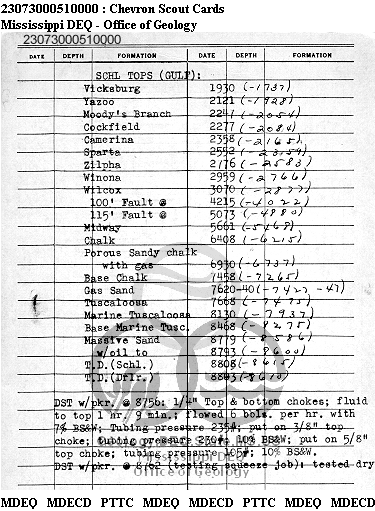 23073000510000 : Chevron Scout Cards
Mississippi DEQ - Office of Geology
23073000510000
DATE DEPTH FORMATION DATE DEPTH FORMATION
SCHL TOPS (GULF):
Vicksburg 1930 (-1737)
Yazoo 2121 (-1928)
Moody's Branch (-2054)
Cockfield 2277 (-2084)
Camerina 2358 (-2165)
Sparta
Zilpha (-2583)
Winona 2959 (-2766)
Wilcox 3070 (-2877)
100' Fault @ 4215 (-4022)
115' Fault @ 5073 (-4880)
Midway 5661 (-5468)
Chalk 6408 (-6215)
Porous Sandy chalk
with gas 6930 (-6737)
Base Chalk 7458 (-7265)
Gas Sand 7620-40 (-7427 -47)
Tuscaloosa 7668 (-7475)
Marine Tuscaloosa 8130 (-7937)
Base Marine Tusc. 8468 (-8275)
Massive Sand 8779 (-8586)
w/oil to 8793 (-8600)
T.D. (Schl.) 8808 (-8615)
T.D. (Dflr.) 8803 (-8610)
DST w/pkr. @ 8756: 1/4" Top & bottom chokes; fluid
to top 1 hr. 9 min.; flowed 6 bbls. per hr. with
7% BS&W; Tubing pressure 235#; put on 3/8" top
choke; tubing pressure 230#; 10% BS&W; put on 5/8"
top choke; tubing pressure 105#; 10% BS&W.
DST w/pkr. @ 8762 (testing squeeze job): tested dry
Mississippi DEQ
Office of Geology
MDEQ MDECD PTTC MDEQ MDECD PTTC MDEQ MDECD